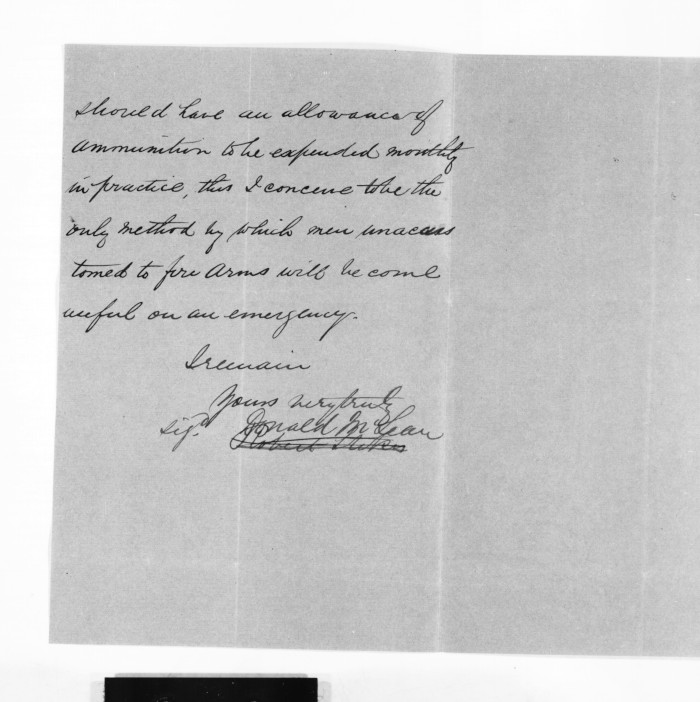 should have an allowance of
ammunition to be expended monthly
in practice, this I conceive to be the
only method by which men unaccus
tomed to fire Arms will become
useful on an emergency.
I remain
Yours very truly
sigd. Donald McLean
Robert